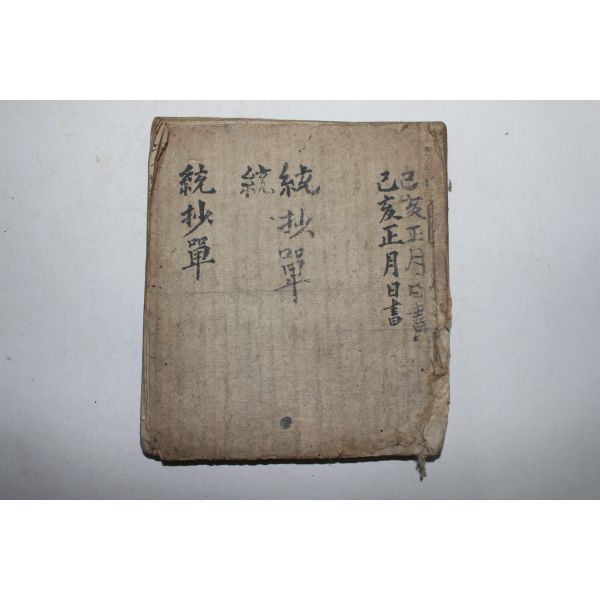 己亥正月日書
己亥正月日書
統抄單
統
統抄單